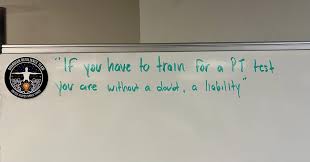 "IF you have to train for a PT test
you are without a doubt, a liability"